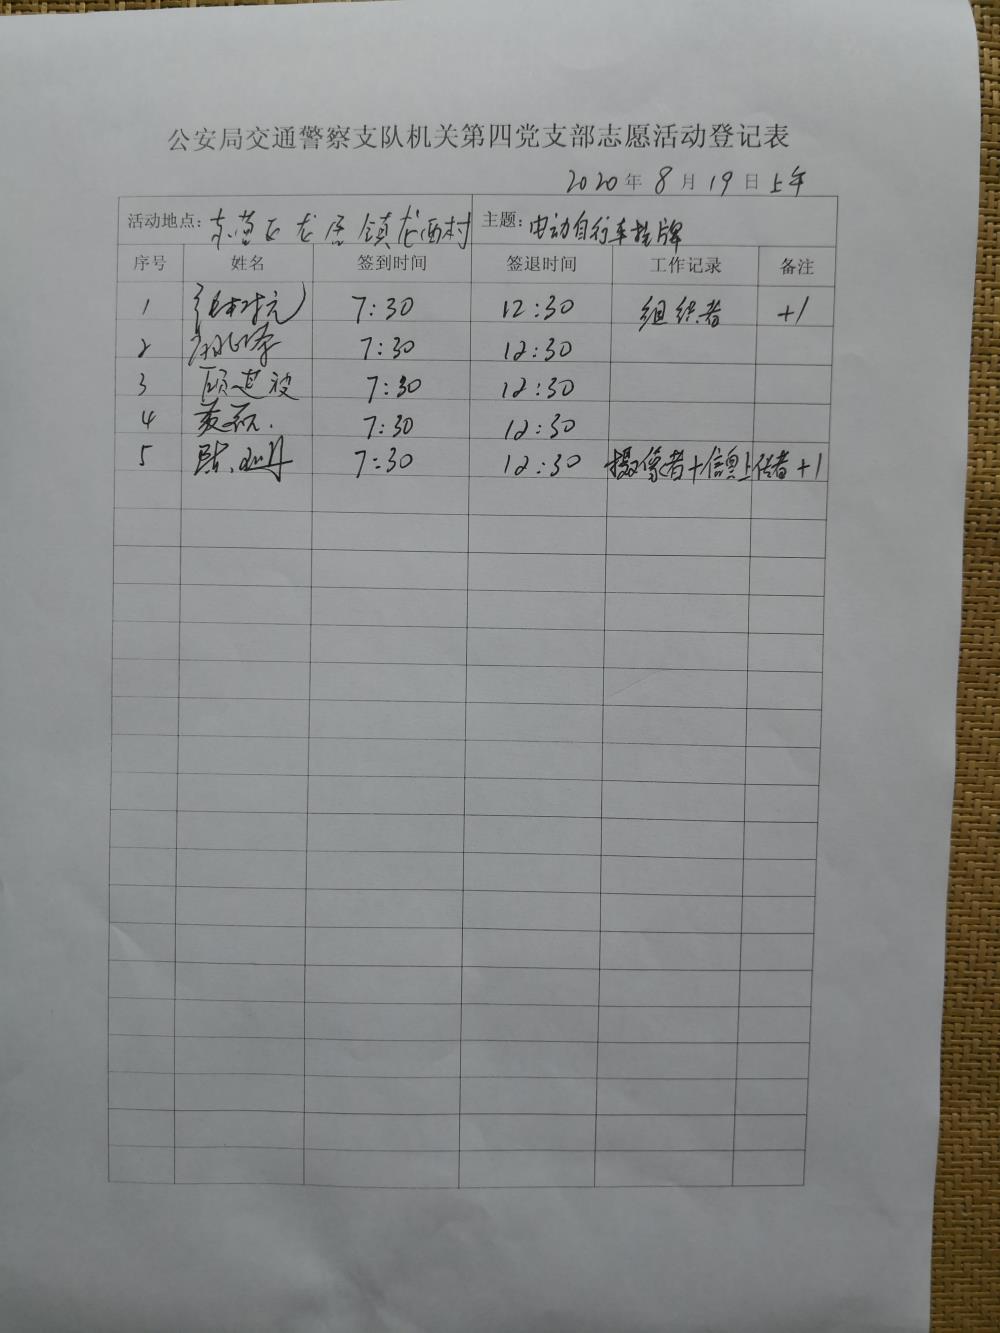 公安局交通警察支队机关第四党支部志愿活动登记表
2020年8月19日上午
活动地点：东营区龙居镇龙西村 主题：电动自行车挂牌
序号 姓名 签到时间 签退时间 工作记录 备注
1 7:30 12:30 组织者 +1
2 7:30 12:30
3 顾建波 7:30 12:30
4 7:30 12:30
5 7:30 12:30 摄像者+信息上传者+1